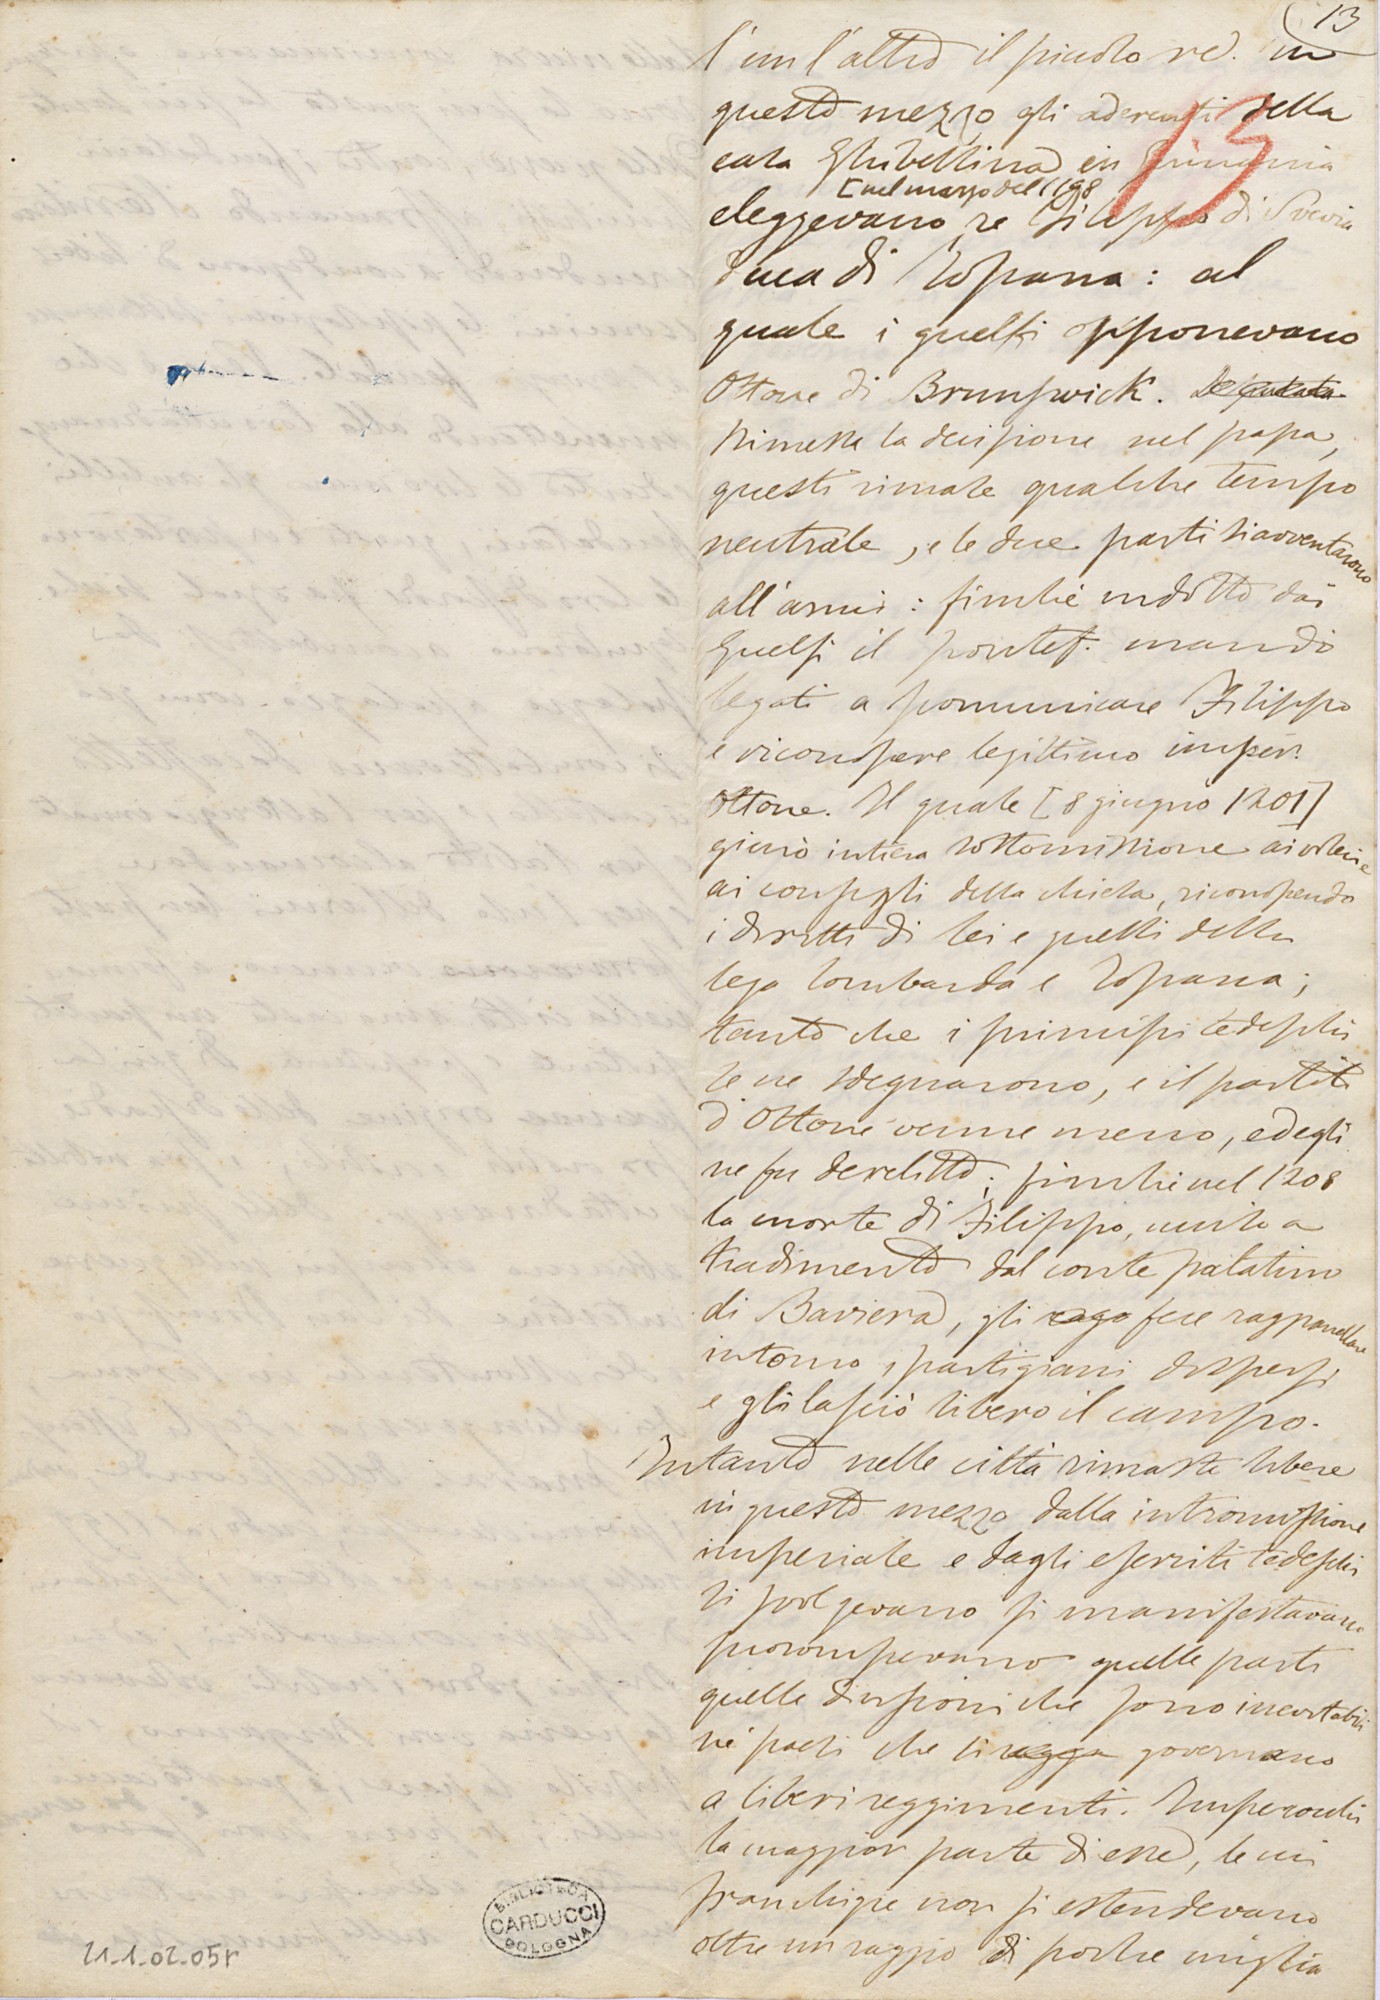 13
l'un l'altro il piccolo re. In
questo mezzo gli aderenti della
13
casa Ghibellina in Germania
[nel marzo del 1198
eleggevano re Filippo di Svevia
duca di Toscana: al
quale i guelfi opponevano
Ottone di Brunswick.
Rimessa la decisione nel papa,
questi rimase qualche tempo
neutrale, e le due parti si avventarono
all'armi: finchè indotto dai
Guelfi il pontef. mandò
legati a scomunicare Filippo
e riconoscere legittimo imper.
Ottone. Il quale [8 giugno 1201]
giurò intiera sottomissione ai voleri e
ai consigli della chiesa, riconoscendo
i diritti di lei e quelli della
lega lombarda e toscana;
tanto che i principi tedeschi
se ne sdegnarono, e il partito
d'Ottone venne meno, ed egli
ne fu derelitto; finchè nel 1208
la morte di Filippo, ucciso a
tradimento dal conte palatino
di Baviera, gli rago fece rappanellare
intorno i partigiani dispersi
e gli lasciò libero il campo.
Intanto nelle città rimaste libere
in questo mezzo dalla intromissione
imperiale e dagli eserciti tedeschi
si svolgevano si manifestavano
prorompevano quelle parti
quelle divisioni che sono inevitabili
ne' paesi che si regga governano
a liberi reggimenti. Imperocchè
la maggior parte di esse, le cui
franchigie non si estendevano
oltre un raggio di poche miglia
BIBLIOTECA
CARDUCCI
BOLOGNA
21_1_02_05r